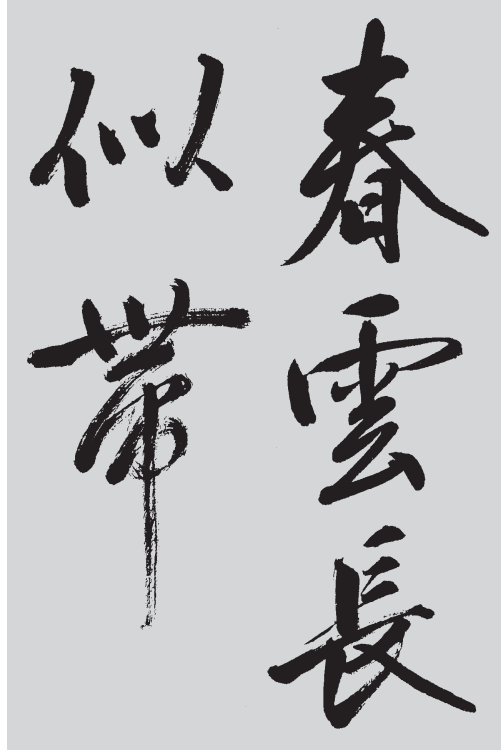 春雲長
似帶